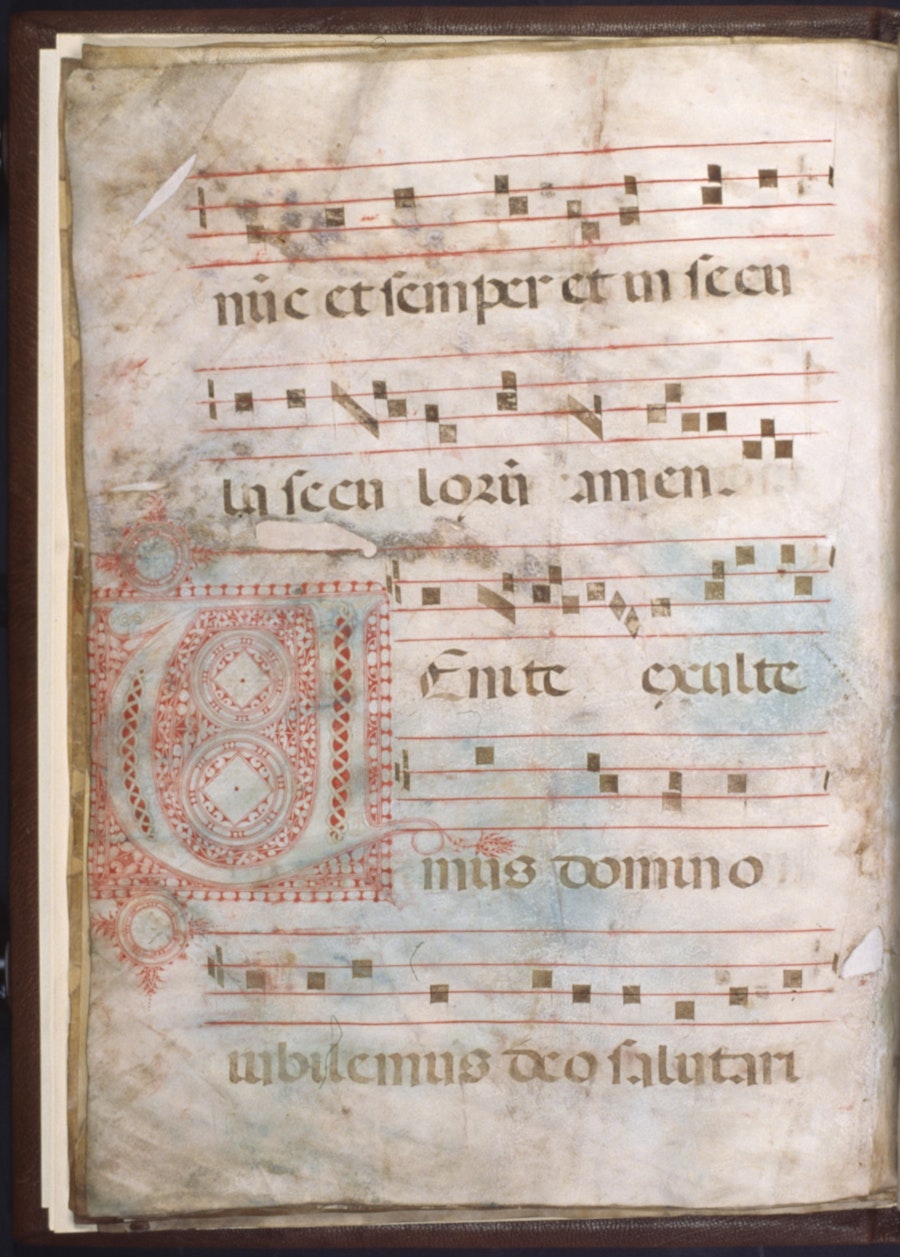 nūc et semper et in secu
la secu lorū amen.
VEnite exulte
mus domino
iubilemus deo salutari